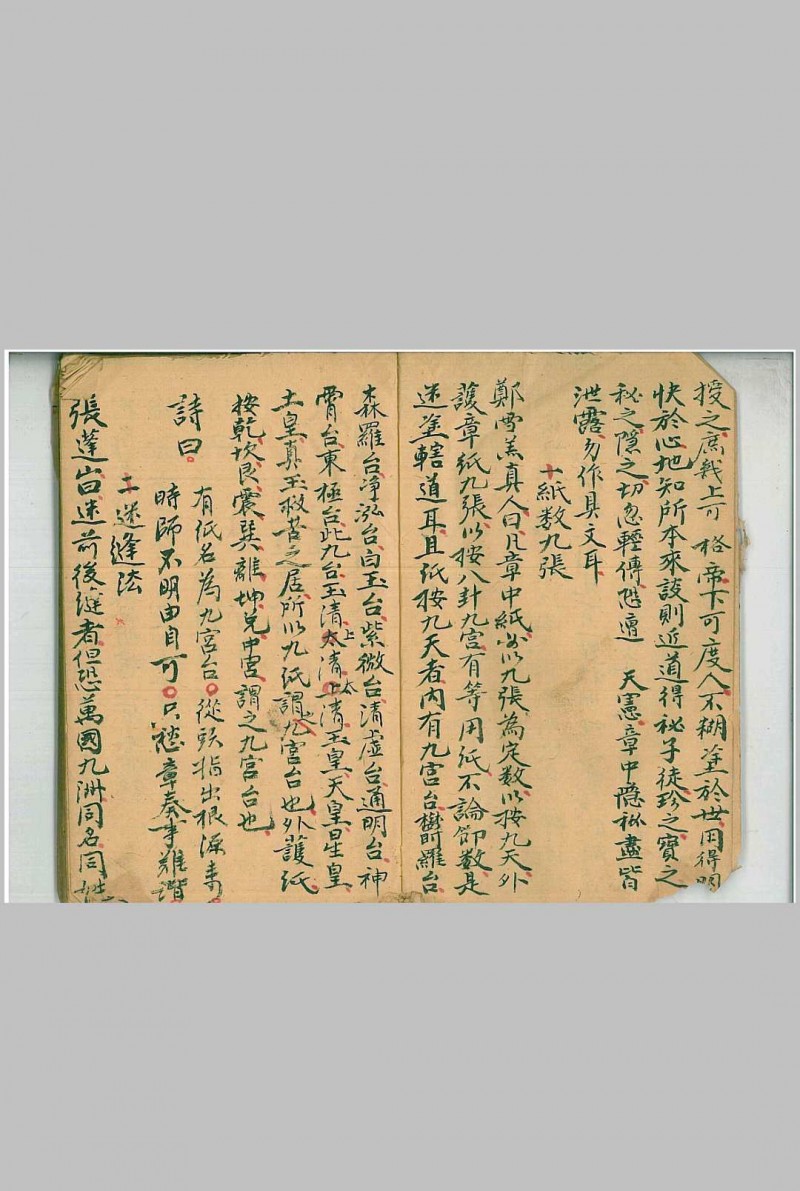 授之庶幾上可 格帝下可度人不糊塗於世用得明
快於心地知所本來設則近道得祕子徒珍之寶之
秘之隱之切忽輕傳恐遭 天憲章中隱祕盡皆
泄露勿作具文耳
十紙數九張
鄭雪羔真人曰凡章中紙必以九張為定數以按九天外
護章紙九張以按八卦九宮有等用紙不論節數是
迷塗轄道耳且紙按九天者內有九宮台欝羅台
森羅台净泓台白玉台紫微台清虛台通明台神
霄台東極台此九台玉清上太清太上清玉皇天皇星皇
土皇真王救苦之居所以九紙謂之九宮台也外護紙
按乾坎艮震巽離坤兌中宮謂之九宮台也
詩曰
有紙名為九宮台從頭指出根源來
時師不明由自可只愁章奏事難諧
十一迷縫法
張蓬山曰迷前後縫者但恐萬國九洲同名同姓